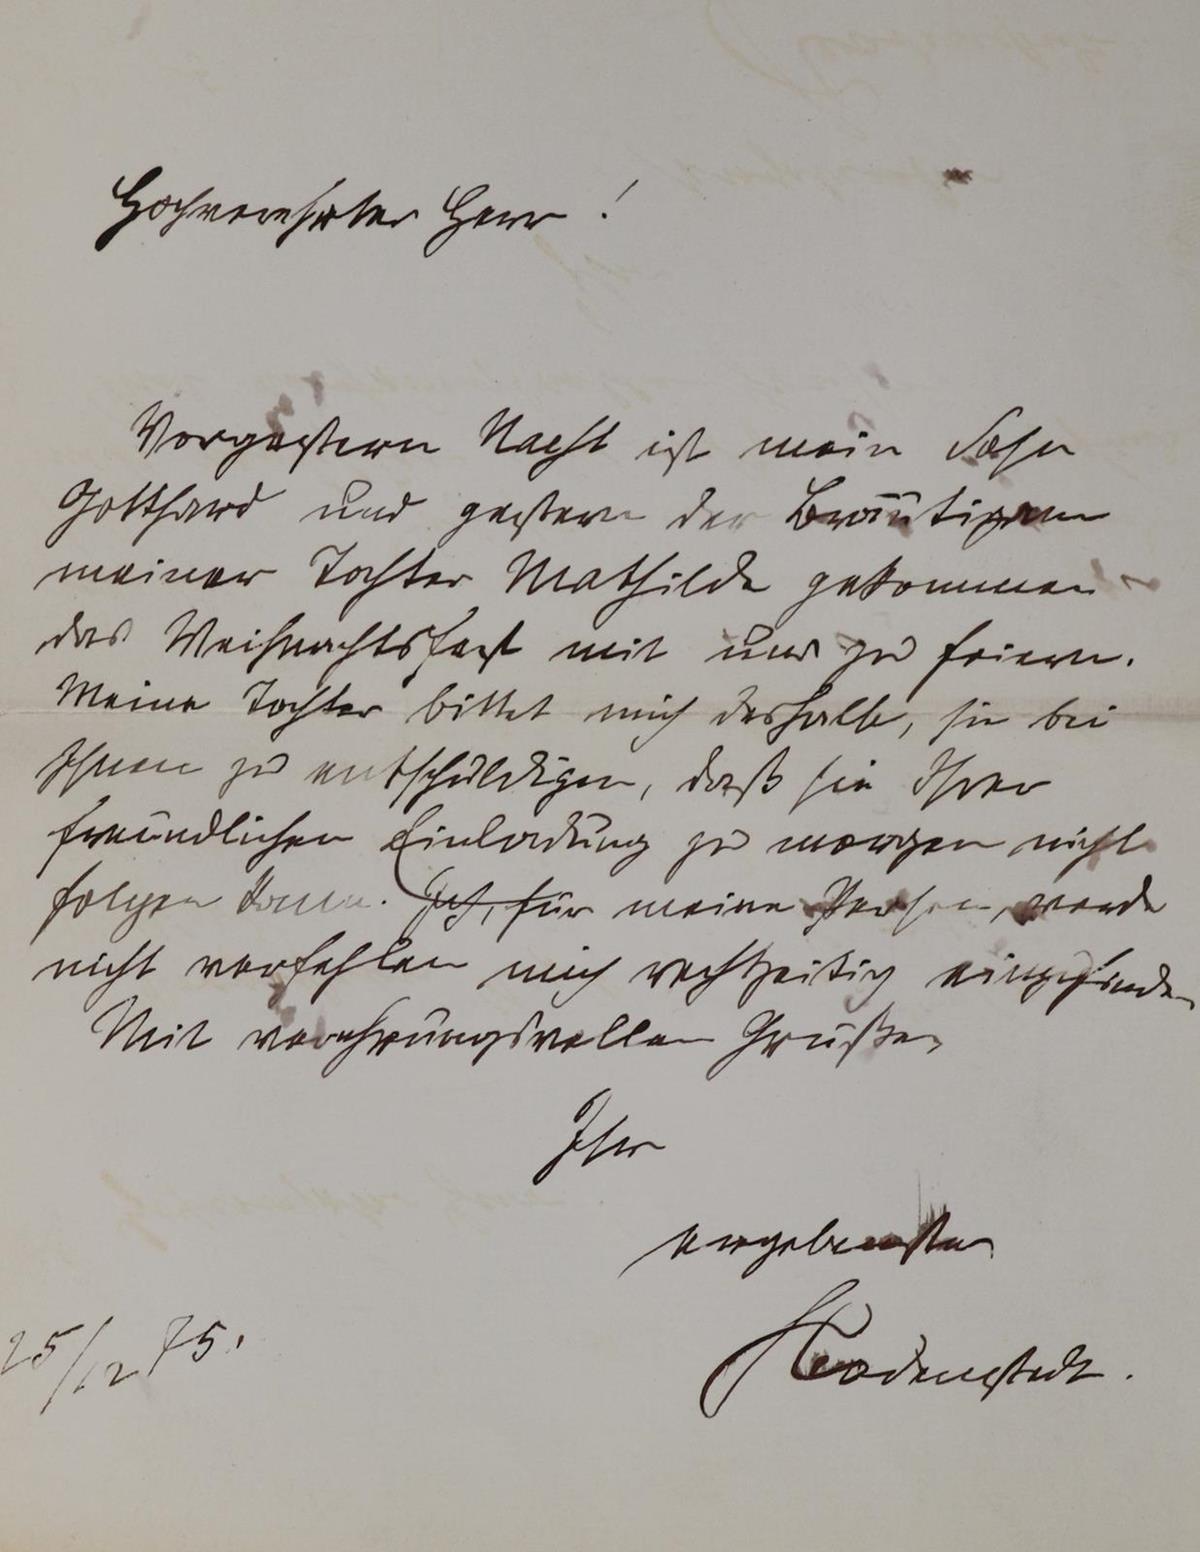 Hochverehrter Herr!
Vorgestern Nacht ist mein Sohn
Gotthard und gestern der Bräutigam
meiner Tochter Mathilde gekommen
das Weihnachtsfest mit uns zu feiern.
Meine Tochter bittet mich deshalb, sie bei
Ihnen zu entschuldigen, daß sie Ihrer
freundlichen Einladung zu morgen nicht
folgen kann. Ich, für meine Person, werde
nicht verfehlen mich rechtzeitig einzufinden
Mit verehrungsvollen Grüßen
Ihr
ergebenster
Bodenstedt.
25/12 75.